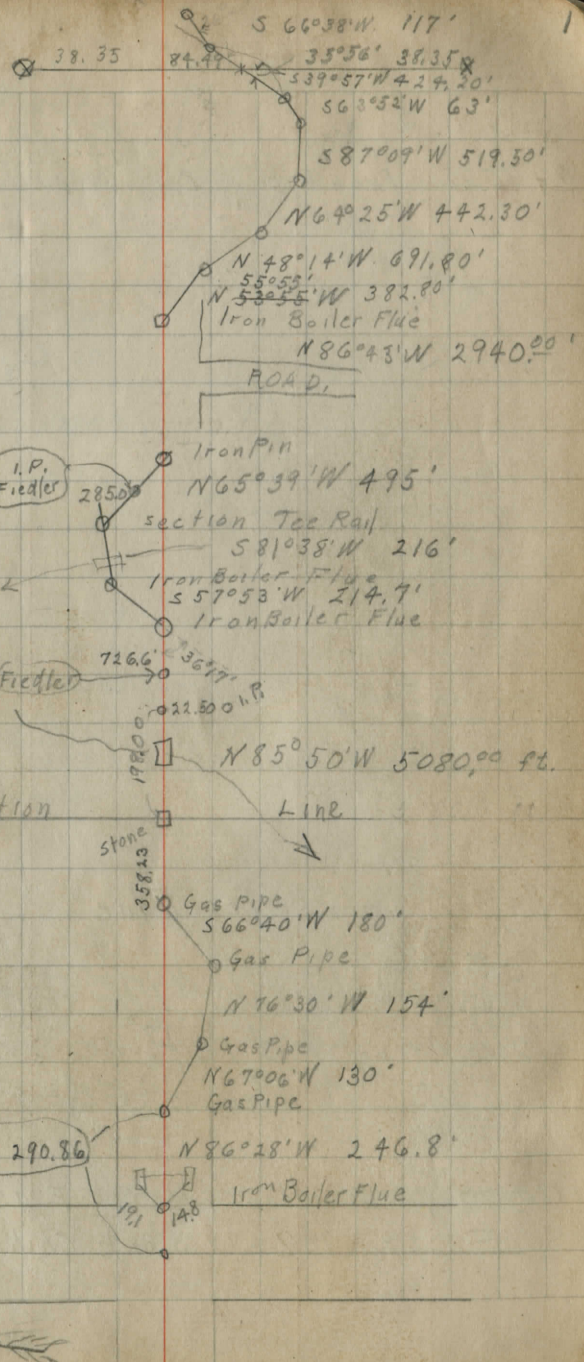 1
S 66°38'W 117'
38.35 84.49 35°56' 38.35
S39°57'W 424.20'
S63°52'W 63'
S87°09'W 519.50'
N64°25'W 442.30'
N 48°14'W 691.80'
55°55'
N 53°55'W 382.80'
Iron Boiler Flue
N86°43'W 2940.00'
ROAD.
Iron Pin
I.P.
Fiedler
285.0
N65°39'W 495'
section Tee Rail
S81°38'W 216'
Iron Boiler Flue
S 57°53'W 214.7'
Iron Boiler Flue
726.6' 36°17'
Fiedler
22.50 I.P.
198.00
N85°50'W 5080.00 ft.
tion Line
stone
358.23
Gas Pipe
S66°40'W 180'
Gas Pipe
N76°30'W 154'
Gas Pipe
N67°06'W 130'
Gas Pipe
290.86
N86°28'W 246.8'
Iron Boiler Flue
19.1 14.8